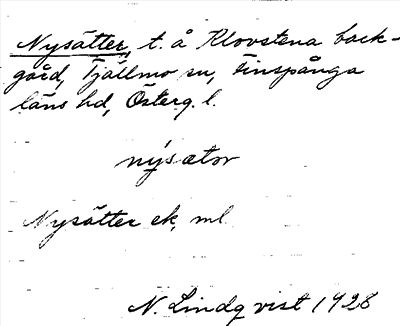 Nysätter, t. å Klovstena back-
gård, Tjällmo sn, Finspånga
läns hd, Österg. l.
nýsætor
Nysätter ek, ml
N. Lindqvist 1928